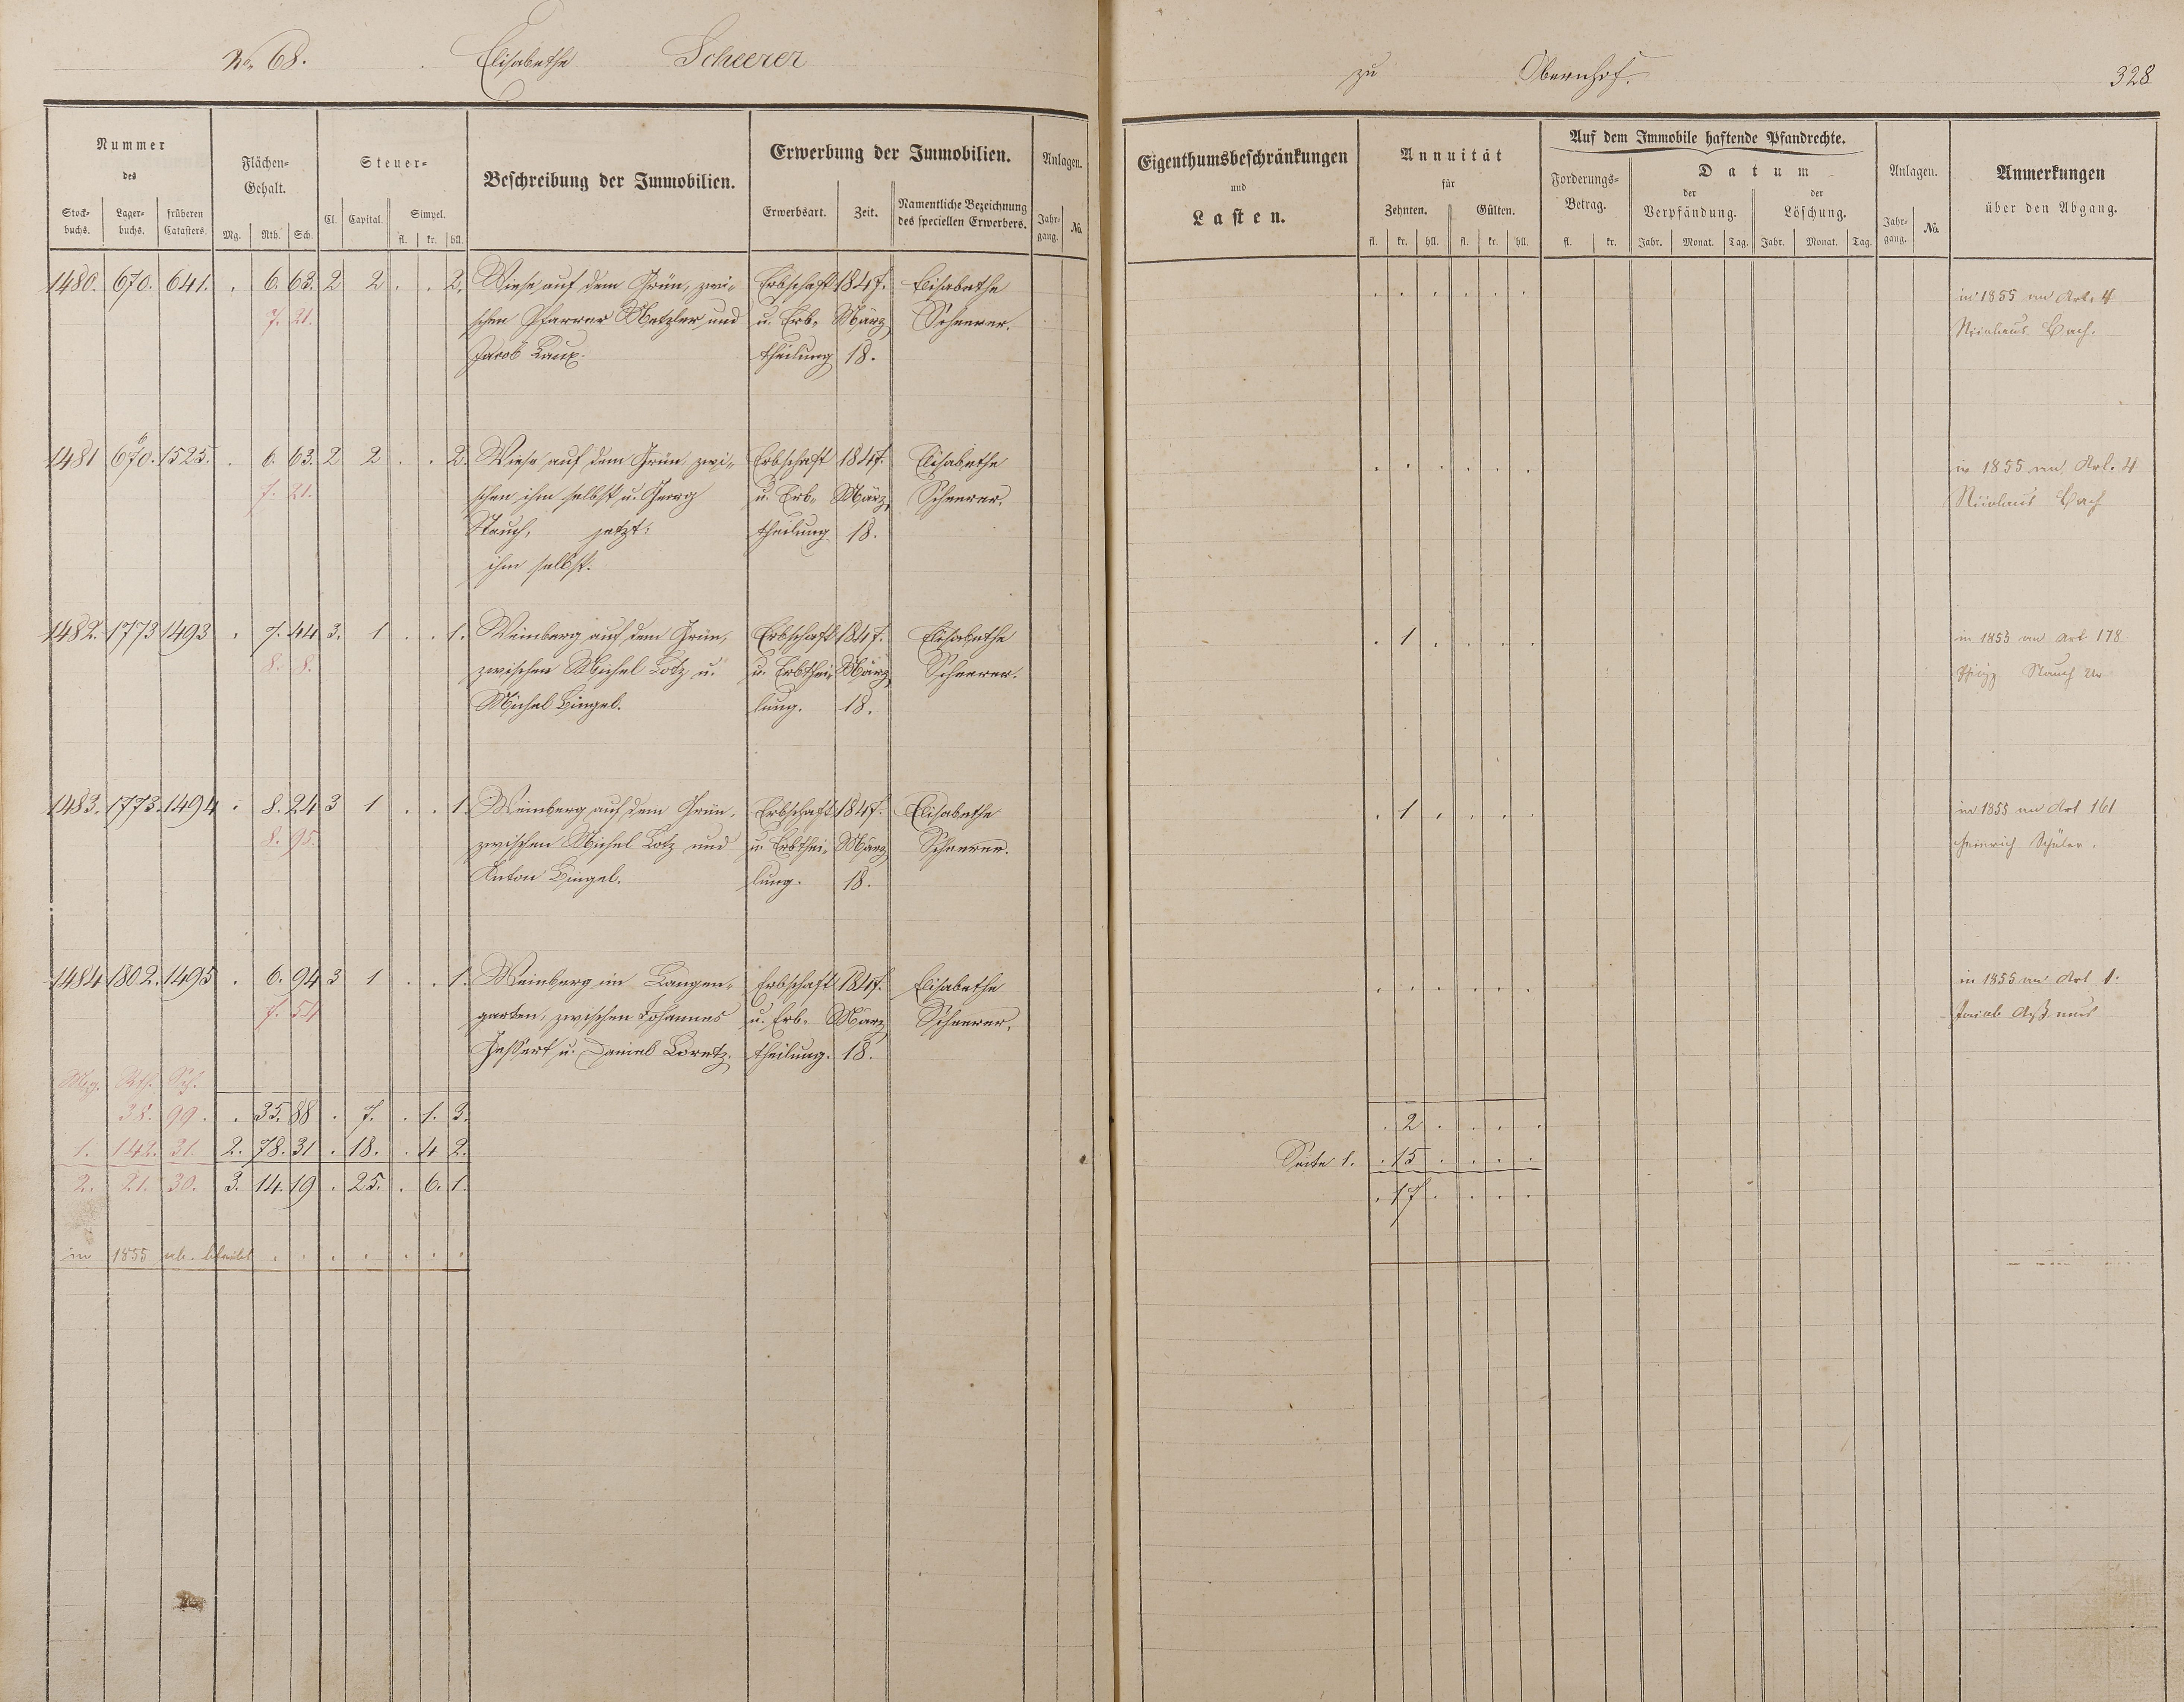 No. 68. Elisabethe Scheerer
zu Obernhof. 328
Nummer
des
Stock-
buchs.
Lager-
buchs.
früheren
Catasters.
Flächen-
Gehalt.
Mg. Rth. Sch.
Steuer-
Cl. Capital. Simpel.
fl. kr. hll.
Beschreibung der Immobilien.
Erwerbung der Immobilien.
Erwerbsart. Zeit. Namentliche Bezeichnung
des speciellen Erwerbers.
Anlagen.
Jahr-
gang. No.
Eigenthumsbeschränkungen
und
Lasten.
Annuität
für
Zehnten. Gülten.
fl. kr. hll. fl. kr. hll.
Auf dem Immobile haftende Pfandrechte.
Forderungs-
Betrag.
fl. kr.
Datum
der
Verpfändung.
der
Löschung.
Jahr. Monat. Tag. Jahr. Monat. Tag.
Anlagen.
Jahr-
gang. No.
Anmerkungen
über den Abgang.
1480. 670. 641. . 6. 63. 2 2 . . 2. Wiese auf dem Grün, zwi- Erbschaft 1847. Elisabethe
7. 21. schen Pfarrer Metzler und u. Erb- März Scheerer.
Jacob Laux. theilung 18.
in 1855 an Art. 4
Nicolaus Bach.
1481 670. 1525. . 6. 63. 2 2 . . 2. Wiese auf dem Grün zwi- Erbschaft 1847. Elisabethe
7. 21. schen ihm selbst u. Georg u. Erb- März Scheerer.
Stauch, jetzt: theilung 18.
ihm selbst.
in 1855 an Art. 4
Nicolaus Bach
1482. 1773 1493 . 7. 44 3. 1 . . 1. Weinberg auf dem Grün, Erbschaft 1847. Elisabethe
8. 8. zwischen Michel Lotz u. u. Erbthei- März Scheerer.
Michel Bingel. lung. 18.
. 1 . . . .
in 1853 an Art 178
Stauch
1483. 1773. 1494 . 8. 24 3 1 . . 1 Weinberg auf dem Grün, Erbschaft 1847. Elisabethe
8. 95. zwischen Michel Lotz und u. Erbthei- März Scheerer.
Anton Bingel. lung. 18.
. 1 . . . .
in 1853 an Art 161
Heinrich Schüler.
1484 1802. 1495 . 6. 94 3 1 . . 1. Weinberg im Langen- Erbschaft 1847. Elisabethe
7. 54 garten, zwischen Johannes u. Erb- März Scheerer.
u. Daniel Loretz. theilung. 18.
in 1855 an Art 1.
Jacob
Mg. Rth. Sch.
38. 99. . 35. 88 . 7. . 1. 3.
1. 142. 31. 2. 78. 31 . 18. . 4 2.
2. 21. 30. 3. 14. 19 . 25. . 6. 1.
. 2 . . . .
Seite 1. . 15 . . . .
. 17 . . . .
in 1855 ab. bleibt . . . . . . .